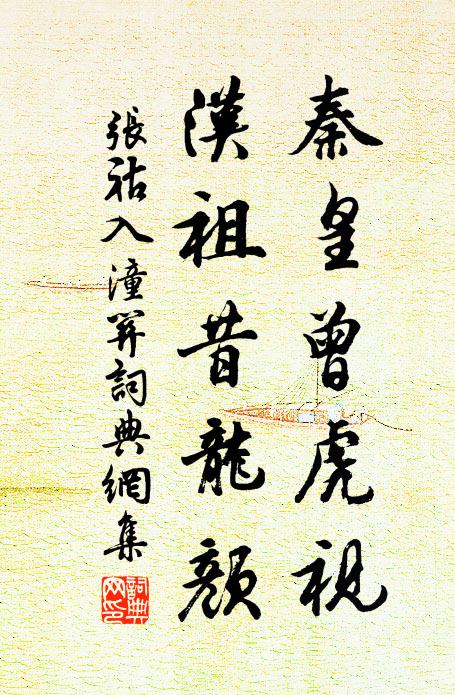 秦皇曾虎視
漢祖昔龍顏
張祜入潼關詞典網集
詞典網印